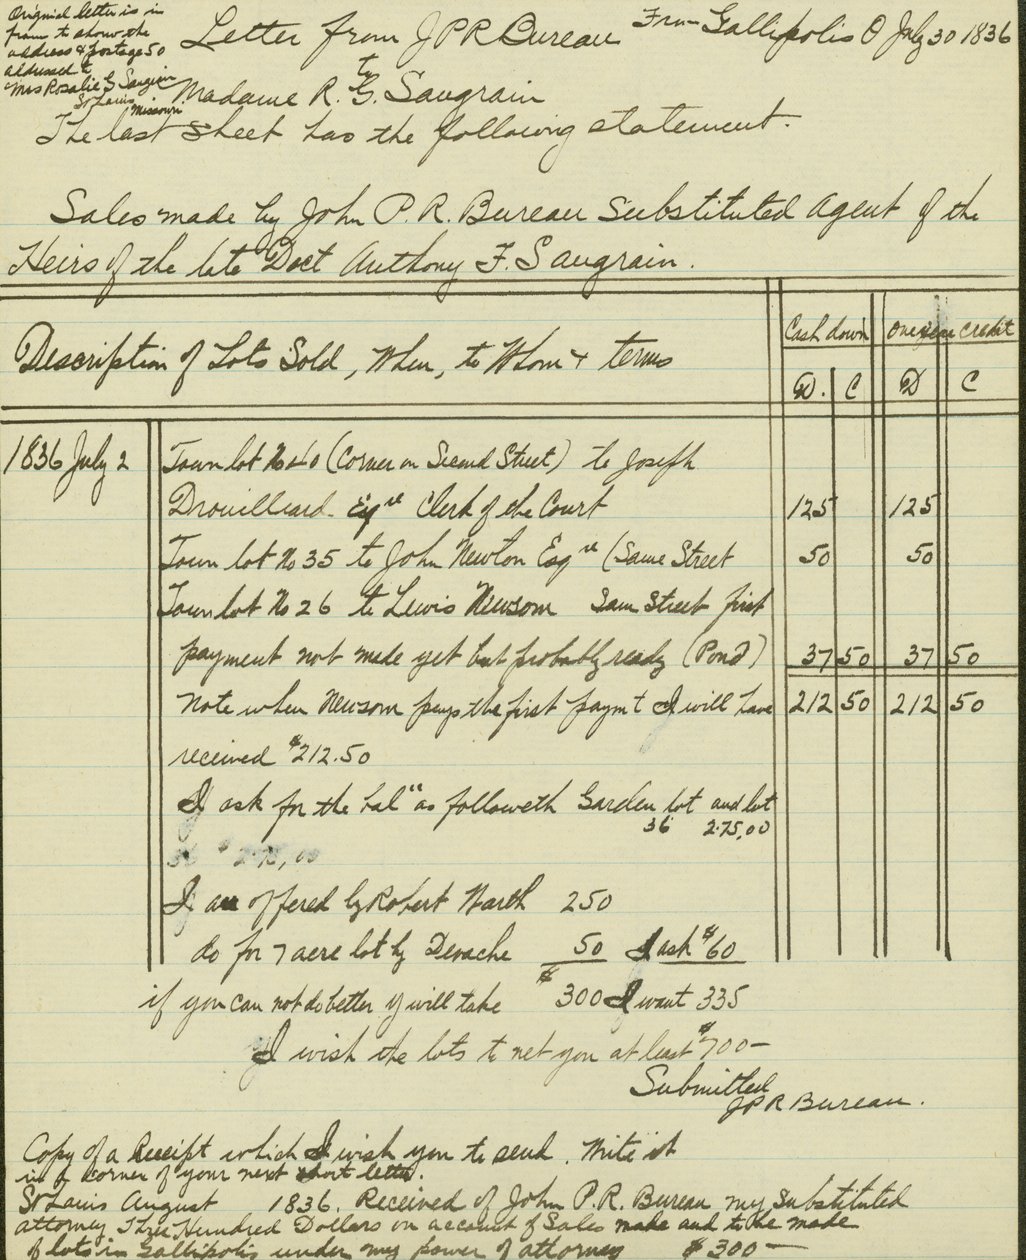 Original letter is in
frame to show the
address & postage 50
addressed to
Mrs Rosalie G Saugrain
St Louis Missouri
Letter from JPR Bureau From Gallipolis O July 30 1836
to
Madame R. G. Saugrain
The last sheet has the following statement.
Sales made by John P. R. Bureau Substituted Agent of the
Heirs of the late Doct Anthony F. Saugrain.
Description of Lots Sold, When, to Whom & terms
Cash down One year credit
D. C D C
1836 July 2 Town lot No 40 (Corner on Second Street) to Joseph
Drouilliard Esqre Clerk of the Court 125 125
Town lot No 35 to John Newton Esqre (Same Street 50 50
Town lot No 26 to Lewis Newsom Sam Street first
payment not made yet but probably ready (Pond) 37 50 37 50
Note when Newsom pays the first paymt I will have 212 50 212 50
received $212.50
I ask for the bal" as followeth Garden lot and lot
36 275,00
36 $ 275,00
I am offered by Robert Warth 250
do for 7 acre lot by Devache 50 I ask $60
if you can not do better y will take $300 I want 335
I wish the lots to net you at least $700—
Submitted
JPR Bureau.
Copy of a Receipt which I wish you to send. Write it
in a corner of your next short letter.
St Louis August 1836. Received of John P. R. Bureau my Substituted
attorney Three Hundred Dollars on account of Sales made and to be made
of lots in Gallipolis under my power of attorney $300—